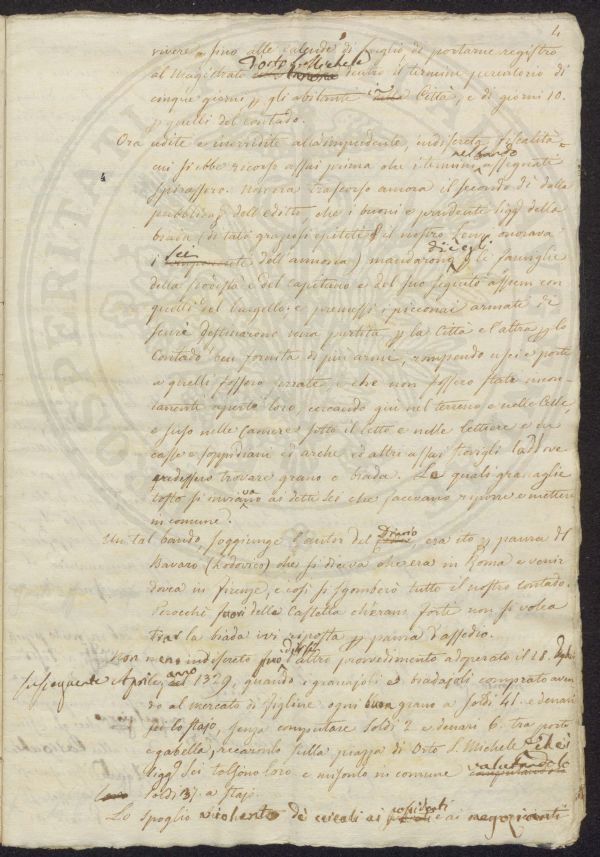 4
vivere, e fino alle calende di Luglio di portarne registro
d'Orto S. Michele
al Magistrato dentro il termine perentorio di
cinque giorni p gli abitanti nella Città, e di giorni 10.
p quelli del contado.
Ora udite e inorridite all'imprudente, indiscreta fiscalità
nel bando
cui si ebbe ricorso assai prima che i termini assegnati
spirassero. Non era trascorso ancora il secondo dì dalla
pubblicaz dell'editto, che i buoni e prudenti Sigg della
biada (di tali graziosi epiteti il nostro Lenzi onorava
sei
dic'egli
i componenti dell'annona) mandarono gli famiglie
della e del capitano e del suo seguito assiem con
quelli del bargello: e premessi i picconai armati di
scuri destinarono una partita p la Città e l'altra p lo
Contado ben fornita di più armi, rompendo usci e porte
a quelli fossero serrate e che non fossero state
aperte loro, cercando giù nel terreno e nelle Celle,
e suso nelle Camere sotto il letto e nelle lettiere e in
casse e soppidiani ed arche ed altri assai laddove
credessero trovare grano e biada. Le quali granaglie
va
tosto si inviano ai detti Sei che facevano riporre e mettere
in comune.
Un tal bando, soggiunge l'autor del Diario era ito p paura del
Bavaro (Lodovico) che si diceva che era in Roma e venir
dovea in Firenze, e così si sgomberò tutto il nostro contado.
Perocchè fuori delle Castella ch'erano forte non si volea
trar la biada ivi riposta p paura d'assedio.
Non meno indiscreto fu l'altro provvedimento adoperato il 18.
susseguente Aprile anno 1329, quando i granajoli e biadajoli comprato aven
do al mercato di Figline ogni buon grano a soldi 41. e denari
sei lo stajo, senza computare soldi 2 e denari 6. tra porto
e gabella, recaronlo sulla piazza di Orto S. Michele. Che i
Sigg Sei tolsono loro e misonlo in comune valutandolo computandolo
loro soldi 37. a stajo.
possidenti
Lo spoglio violento de' cereali ai e ai negozianti